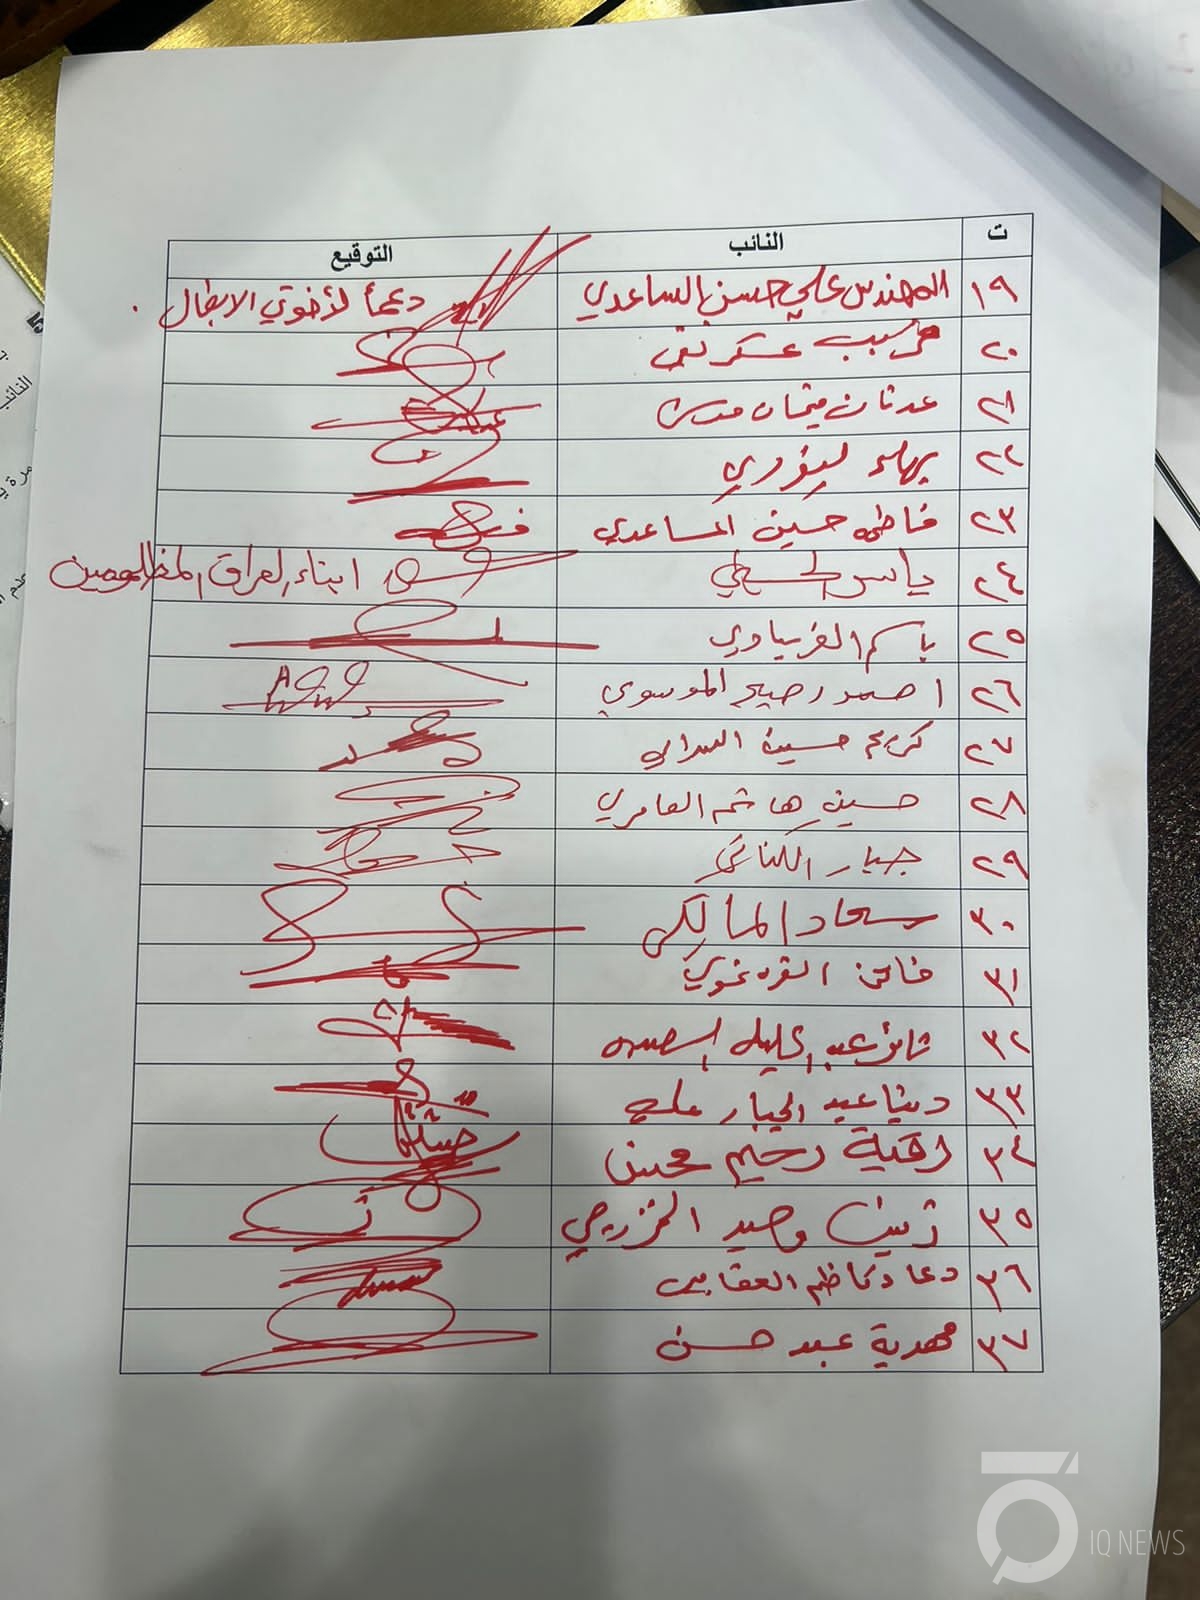 ت النائب التوقيع
١٩ المهندس علي حسن الساعدي دعماً لأخوتي الابطال .
٢٠ عسكر
٢١ عدنان
٢٢ بهاء النوري
٢٣ فاطمة حسين الساعدي
٢٤ ياسر ابناء العراق المظلومين
٢٥ باسم الغريباوي
٢٦ احمد رحيم الموسوي
٢٧ كريم حسين
٢٨ حسين هاشم العامري
٢٩ جبار الكناني
٣٠ سعاد المالكي
٣١ فاتن القره غولي
٣٢ ثائر عبد
٣٣ دنيا عبد الجبار علي
٣٤ رقية رحيم محسن
٣٥ زينب وحيد الخزرجي
٣٦ دعاء كاظم العقابي
٣٧ مهدية عبد حسن
IQ NEWS